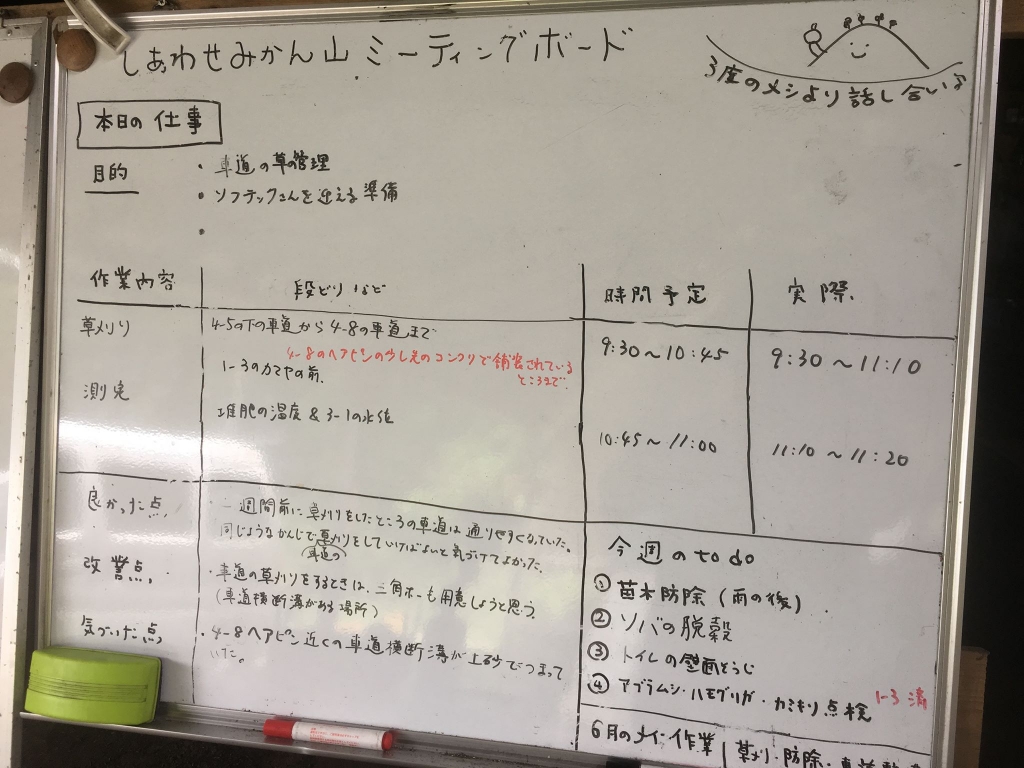 しあわせみかん山 ミーティングボード
3度のメシより話し合い♪
本日の仕事
目的
・車道の草の管理
・ソフテックさんを迎える準備
・
作業内容
段どりなど
時間予定
実際
草刈り
4-5の下の車道から4-8の車道まで
4-8のヘアピンの少し先のコンクリで舗装されている
ところまで
1-3のカマヤの前.
9:30〜10:45
9:30〜11:10
測定
堆肥の温度&3-1の水位
10:45〜11:00
11:10〜11:20
良かった点
・一週間前に草刈りをしたところの車道は通りやすくなっていた。
同じようなかんじで草刈りをしていければよいと気づけてよかった。
車道の
改善点
・車道の草刈りをするときは、三角ホーも用意しようと思う。
(車道横断溝がある場所)
気づいた点
・4-8ヘアピン近くの車道横断溝が土砂でつまって
いた。
今週のto do
①苗木防除(雨の後)
② ソバの脱穀
③ トイレの壁画そうじ
④ アブラムシ・ハモグリガ・カミキリ点検
1-3 済
6月のメイン作業
草刈り・防除・車道